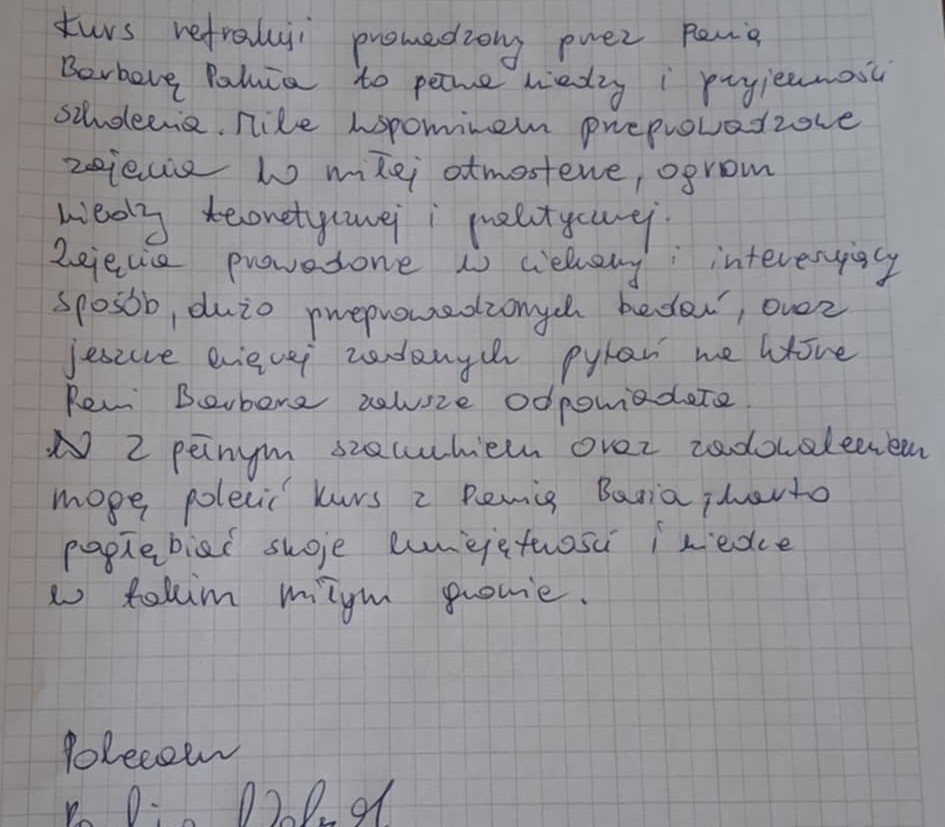 Kurs refrakcji prowadzony przez Panią
Barbarę Pakuła to pełne wiedzy i przyjemności
szkolenia. Mile wspominam przeprowadzone
zajęcia w miłej atmosferze, ogrom
wiedzy teoretycznej i praktycznej.
Zajęcia prowadzone w ciekawy i interesujący
sposób, dużo przeprowadzonych badań, oraz
jeszcze więcej zadanych pytań na które
Pani Barbara zawsze odpowiadała.
Z pełnym szacunkiem oraz zadowoleniem
mogę polecić kurs z Panią Basią, warto
pogłębiać swoje umiejętności i wiedzę
w takim miłym gronie.
Polecam